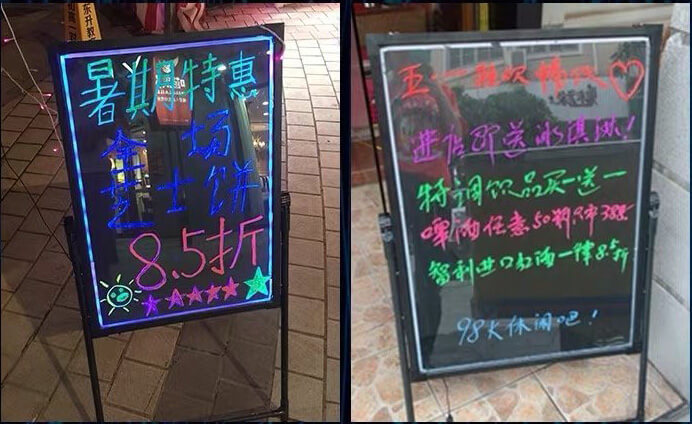 暑期特惠
全场
芝士饼
8.5折
五·一狂欢情侣
进店即送冰淇淋!
特调饮品买一送一
啤酒任意50瓶只市388
智利进口红酒一律8.5折
98K休闲吧!